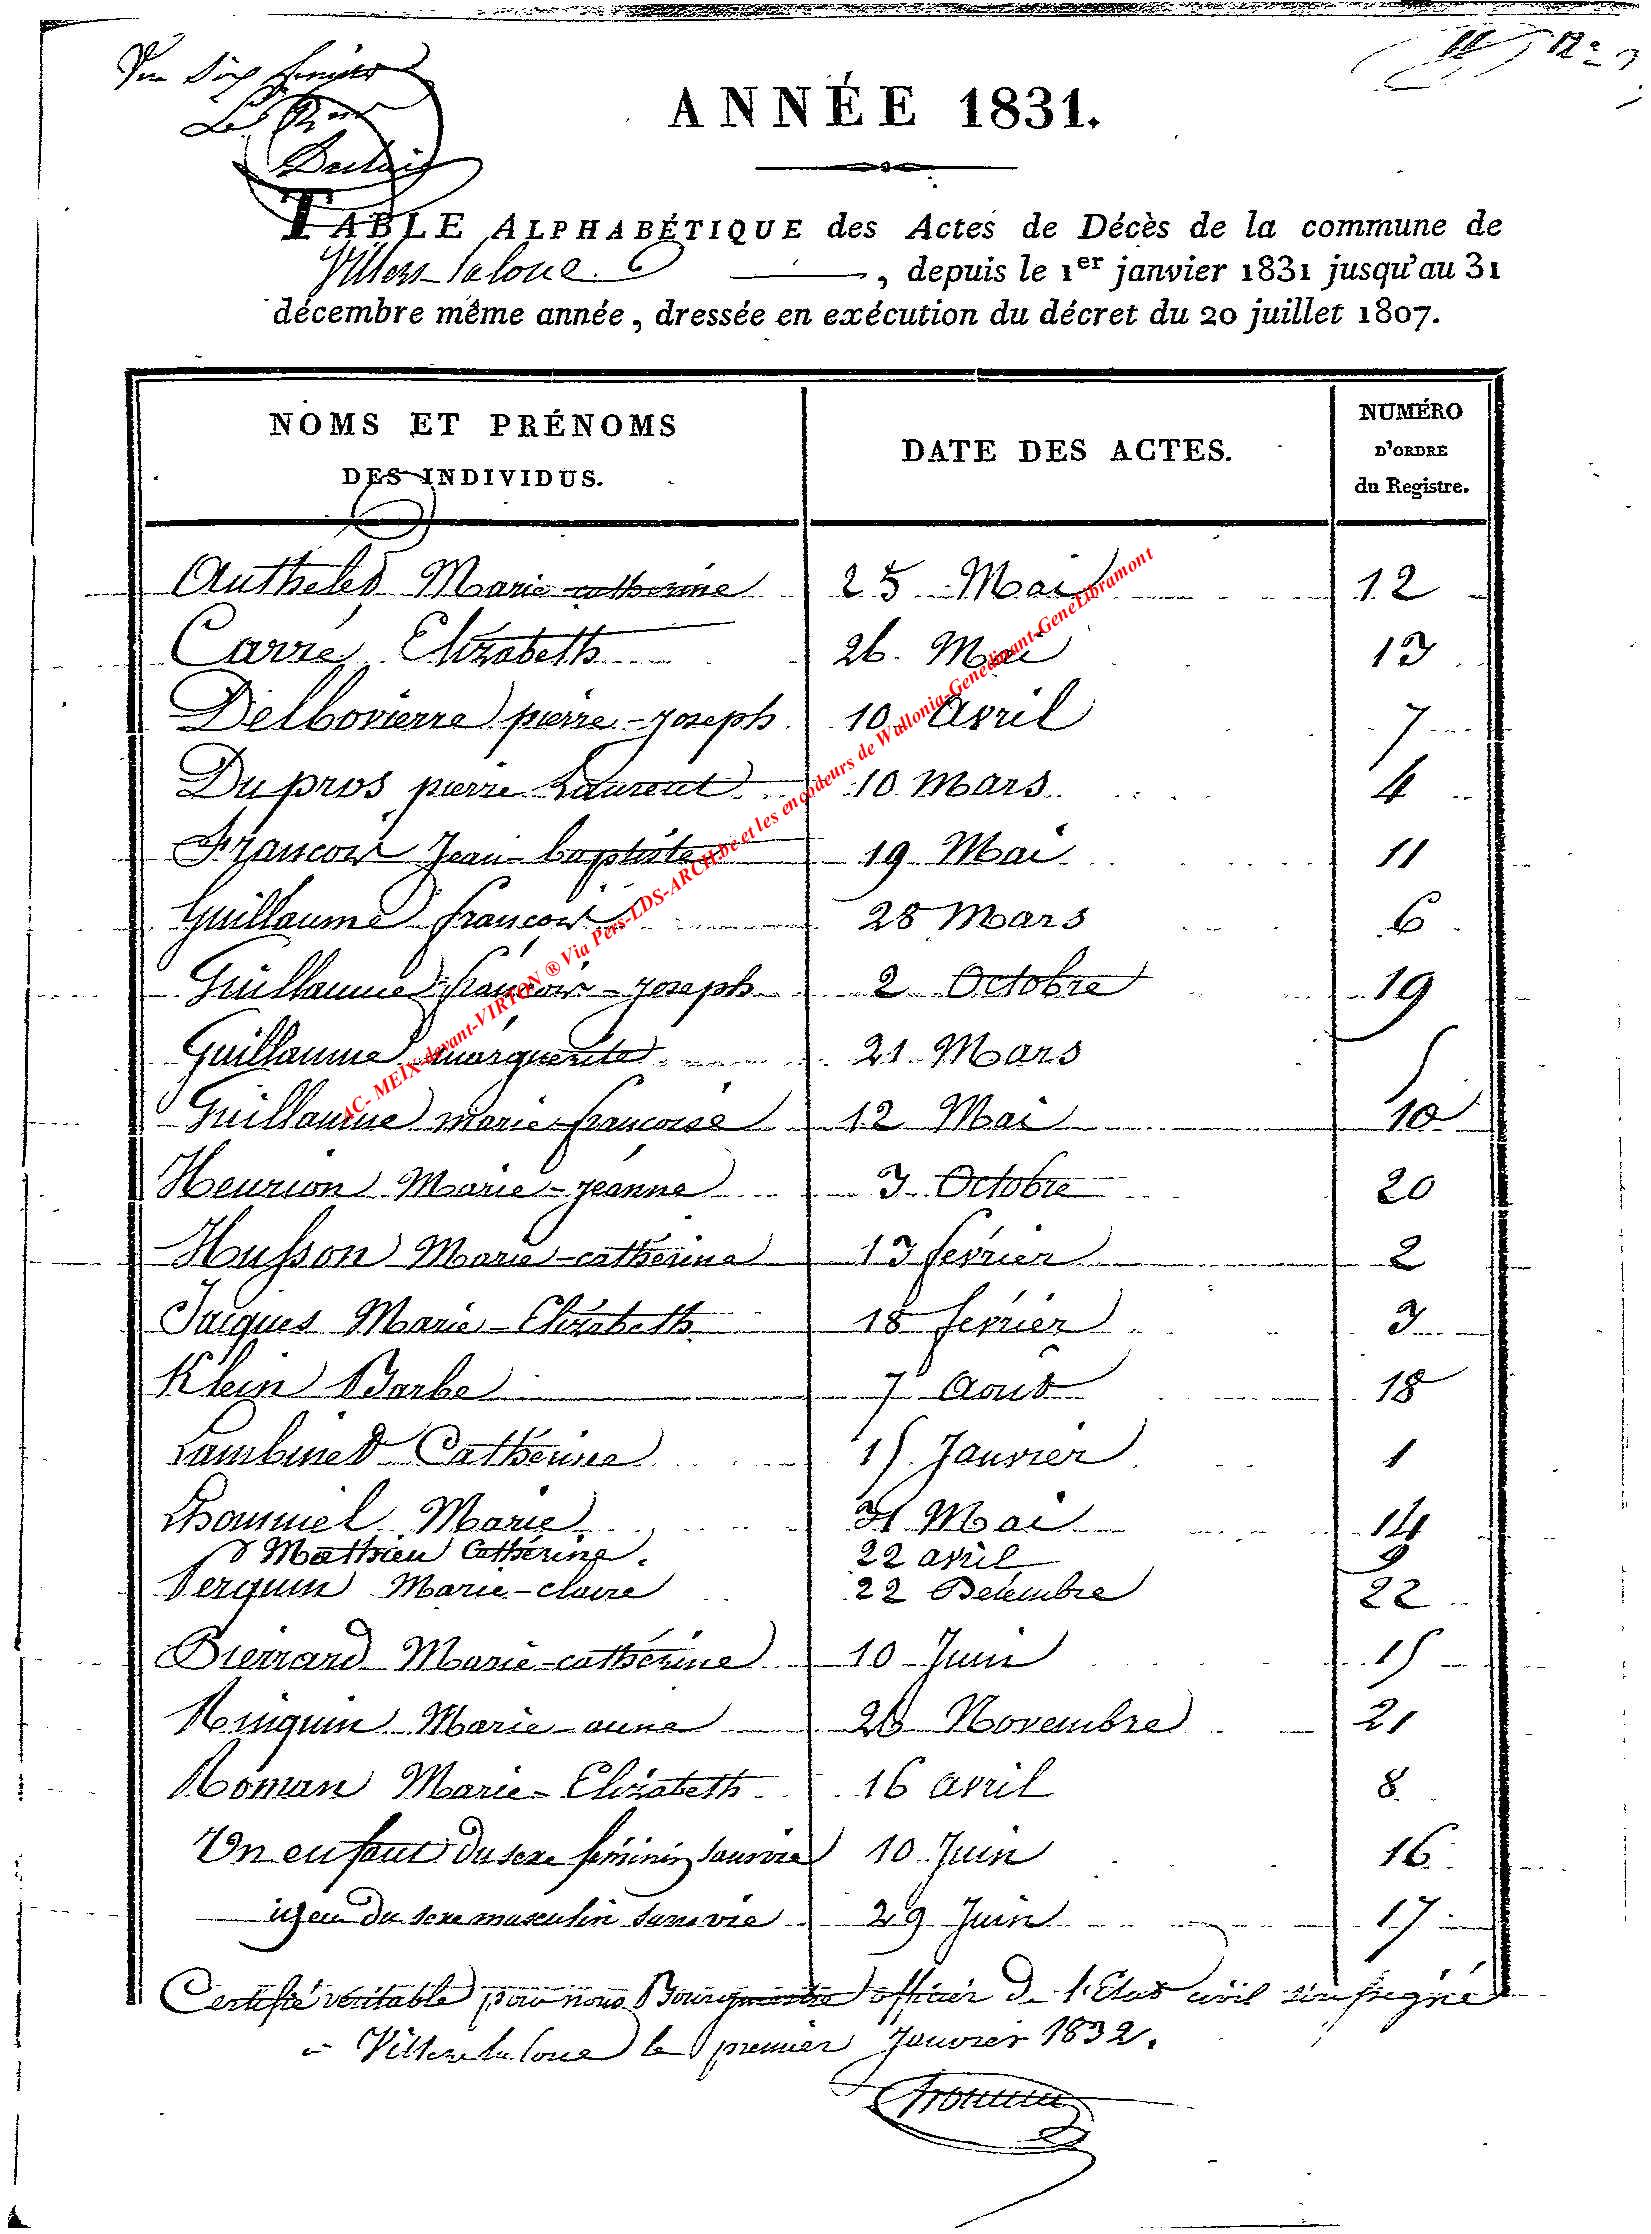 ANNÉE 1831.
TABLE ALPHABÉTIQUE des Actes de Décès de la commune de
Villers la loue, depuis le 1er janvier 1831 jusqu'au 31
décembre même année, dressée en exécution du décret du 20 juillet 1807.
NOMS ET PRÉNOMS DES INDIVIDUS. DATE DES ACTES. NUMÉRO D'ORDRE du Registre.
Authelet Marie catherine 25 Mai 12
Carré Elizabeth 26 Mai 13
Delbovierre pierre-joseph 10 Avril 7
Dupros pierre Laurent 10 Mars 4
Francois Jean-baptiste 19 Mai 11
Guillaume francois 28 Mars 6
Guillaume francois-joseph 2 Octobre 19
Guillaume marguerite 21 Mars 5
Guillaume marie-francoise 12 Mai 10
Henrion Marie-jeanne 3 Octobre 20
Husson Marie-catherine 13 février 2
Jacques Marie-Elizabeth 18 février 3
Klein Barbe 7 Aout 18
Lambinet Catherine 15 Janvier 1
Lhommel Marie 31 Mai 14
Mathieu Catherine. 22 avril 9
Perquin Marie-claire 22 Décembre 22
Pierrard Marie-catherine 10 Juin 15
Rinquin Marie-anne Novembre 21
Roman Marie-Elizabeth 16 avril 8
Un enfant du sexe féminin sans vie 10 Juin 16
du sexe masculin sans vie 29 Juin 17
Certifié véritable par nous Bourgmestre officier de l'Etat civil soussigné
à Villers la loue le premier Janvier 1832.
AC- MEIX-devant-VIRTON ® Via Pers-LDS-ARCH.be et les encodeurs de Wallonia-Genedinant-GeneLibramont